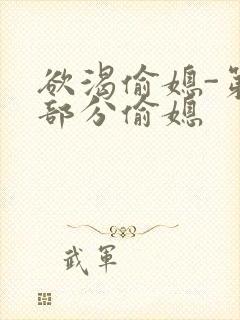 欲渴偷媳-第
部分偷媳
武軍